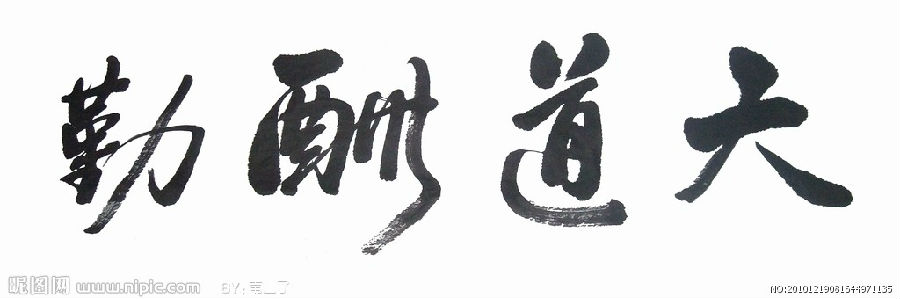 大道酬勤
昵图网 www.nipic.com
NO:20101219081544971135